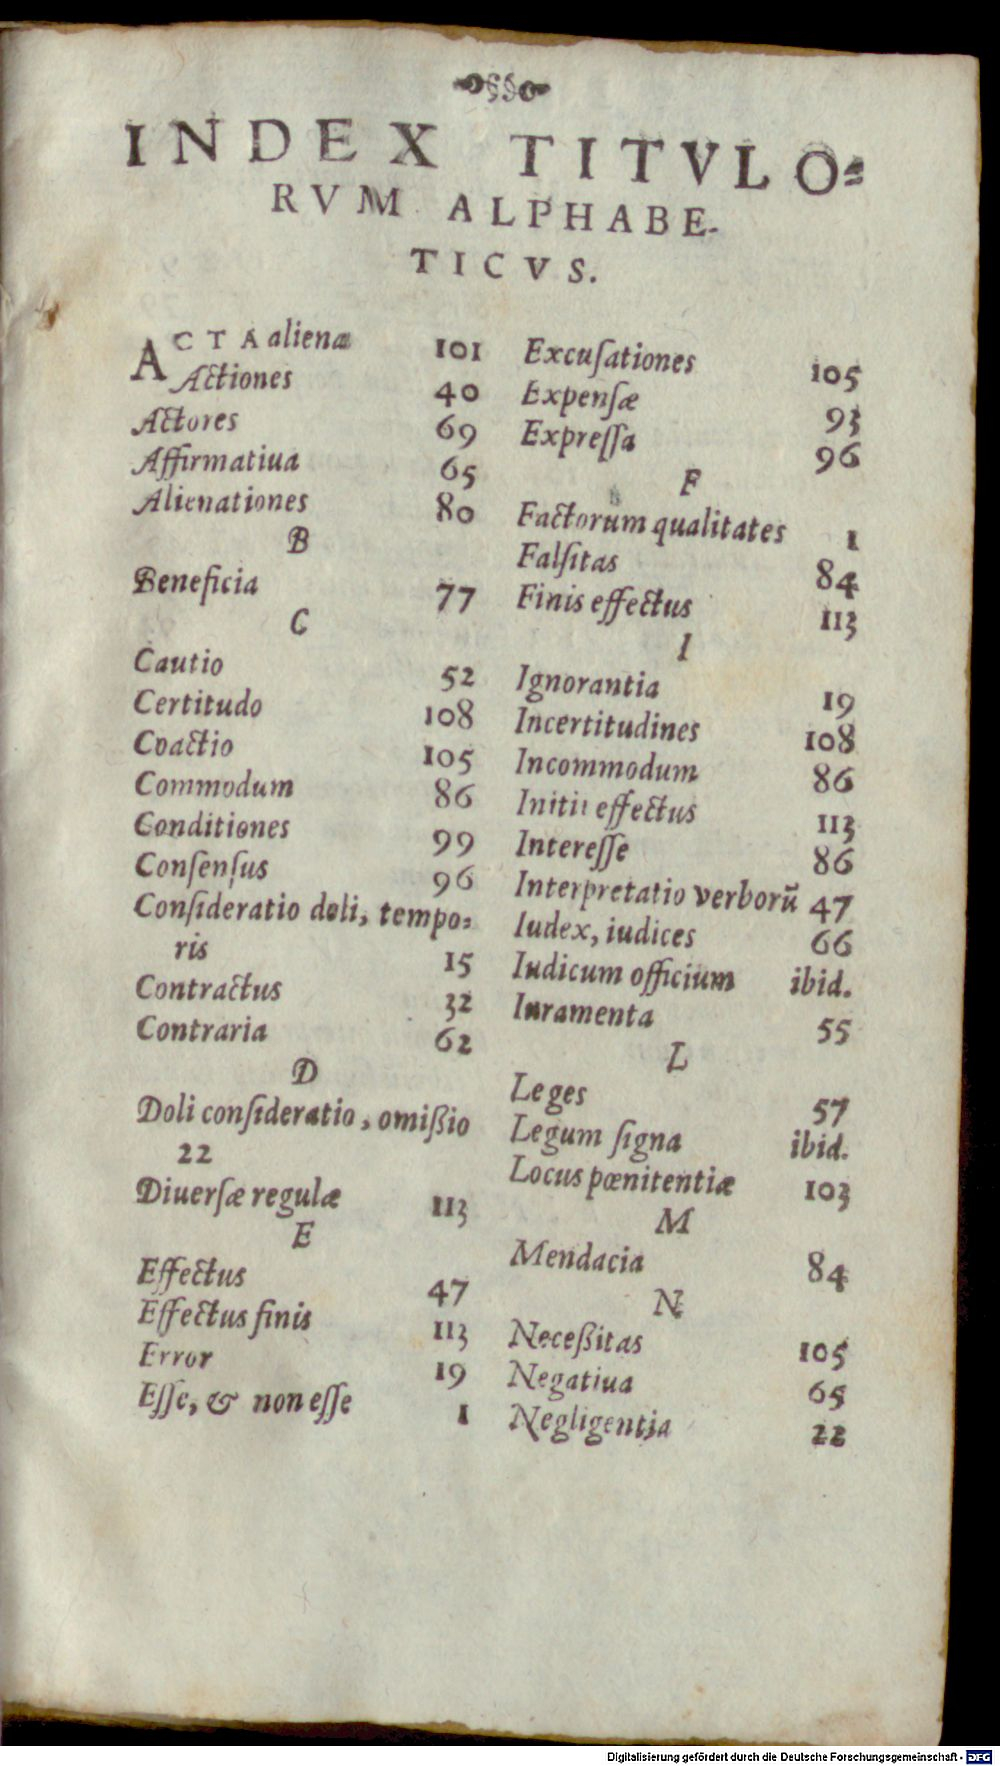 INDEX TITVLO=
RVM ALPHABE-
TICVS.
ACTA alienæ 101
Actiones 40
Actores 69
Affirmatiua 65
Alienationes 80
B
Beneficia 77
C
Cautio 52
Certitudo 108
Coactio 105
Commodum 86
Conditiones 99
Conſenſus 96
Conſideratio doli, tempo=
ris 15
Contractus 32
Contraria 62
D
Doli conſideratio, omißio
22
Diuerſæ regulæ 113
E
Effectus 47
Effectus finis 113
Error 19
Eſſe, & non eſſe 1
Excuſationes 105
Expenſæ 93
Expreſſa 96
F
Factorum qualitates 1
Falſitas 84
Finis effectus 113
I
Ignorantia 19
Incertitudines 108
Incommodum 86
Initii effectus 113
Intereſſe 86
Interpretatio verborū 47
Iudex, iudices 66
Iudicum officium ibid.
Iuramenta 55
L
Leges 57
Legum ſigna ibid.
Locus pœnitentiæ 103
M
Mendacia 84
N
Neceßitas 105
Negatiua 65
Negligentia 22
Digitalisierung gefördert durch die Deutsche Forschungsgemeinschaft - DFG